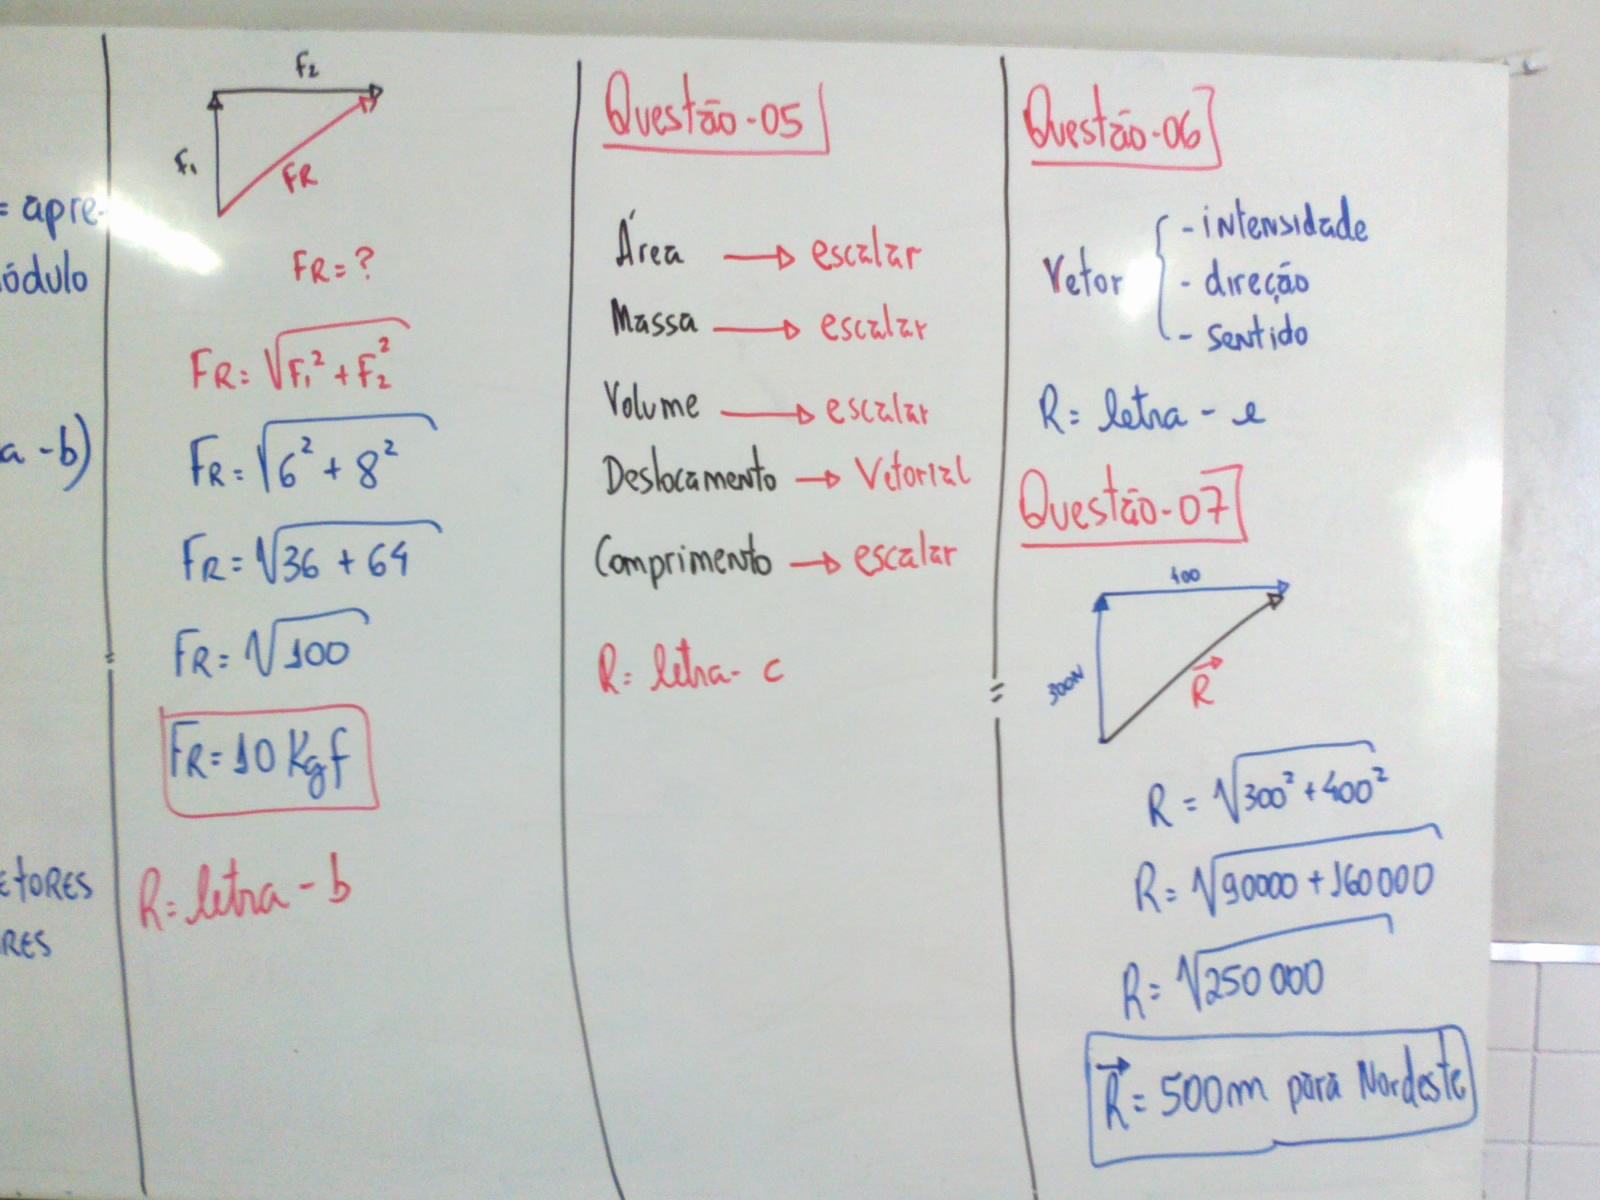 = apre-
ódulo
a - b)
ETORES
RES
F₂
F₁
FR
FR = ?
FR = √F₁² + F₂²
FR = √6² + 8²
FR = √36 + 64
FR = √100
FR = 10 Kgf
R = letra - b
Questão - 05
Área → escalar
Massa → escalar
Volume → escalar
Deslocamento → Vetorial
Comprimento → escalar
R = letra - c
Questão - 06
Vetor { - intensidade
- direção
- sentido
R = letra - e
Questão - 07
400
300N
R
R = √300² + 400²
R = √90000 + 160000
R = √250 000
R = 500m para Nordeste